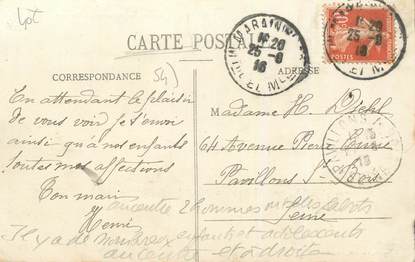 Lpt
CARTE POSTALE
CORRESPONDANCE
54)
ADRESSE
MARAINVILLER
16 20
25 - 9
16
En attendant le plaisir
de vous voir je t'envoi
ainsi qu'à nos enfants
toutes mes affections
Ton mari
Henri
Madame H.
64 Avenue Pierre Curie
Pavillons S/ Bois
Seine
au centre 2 hommes en sabots
Il y a de nombreux enfants et adolescents
au centre et à droite